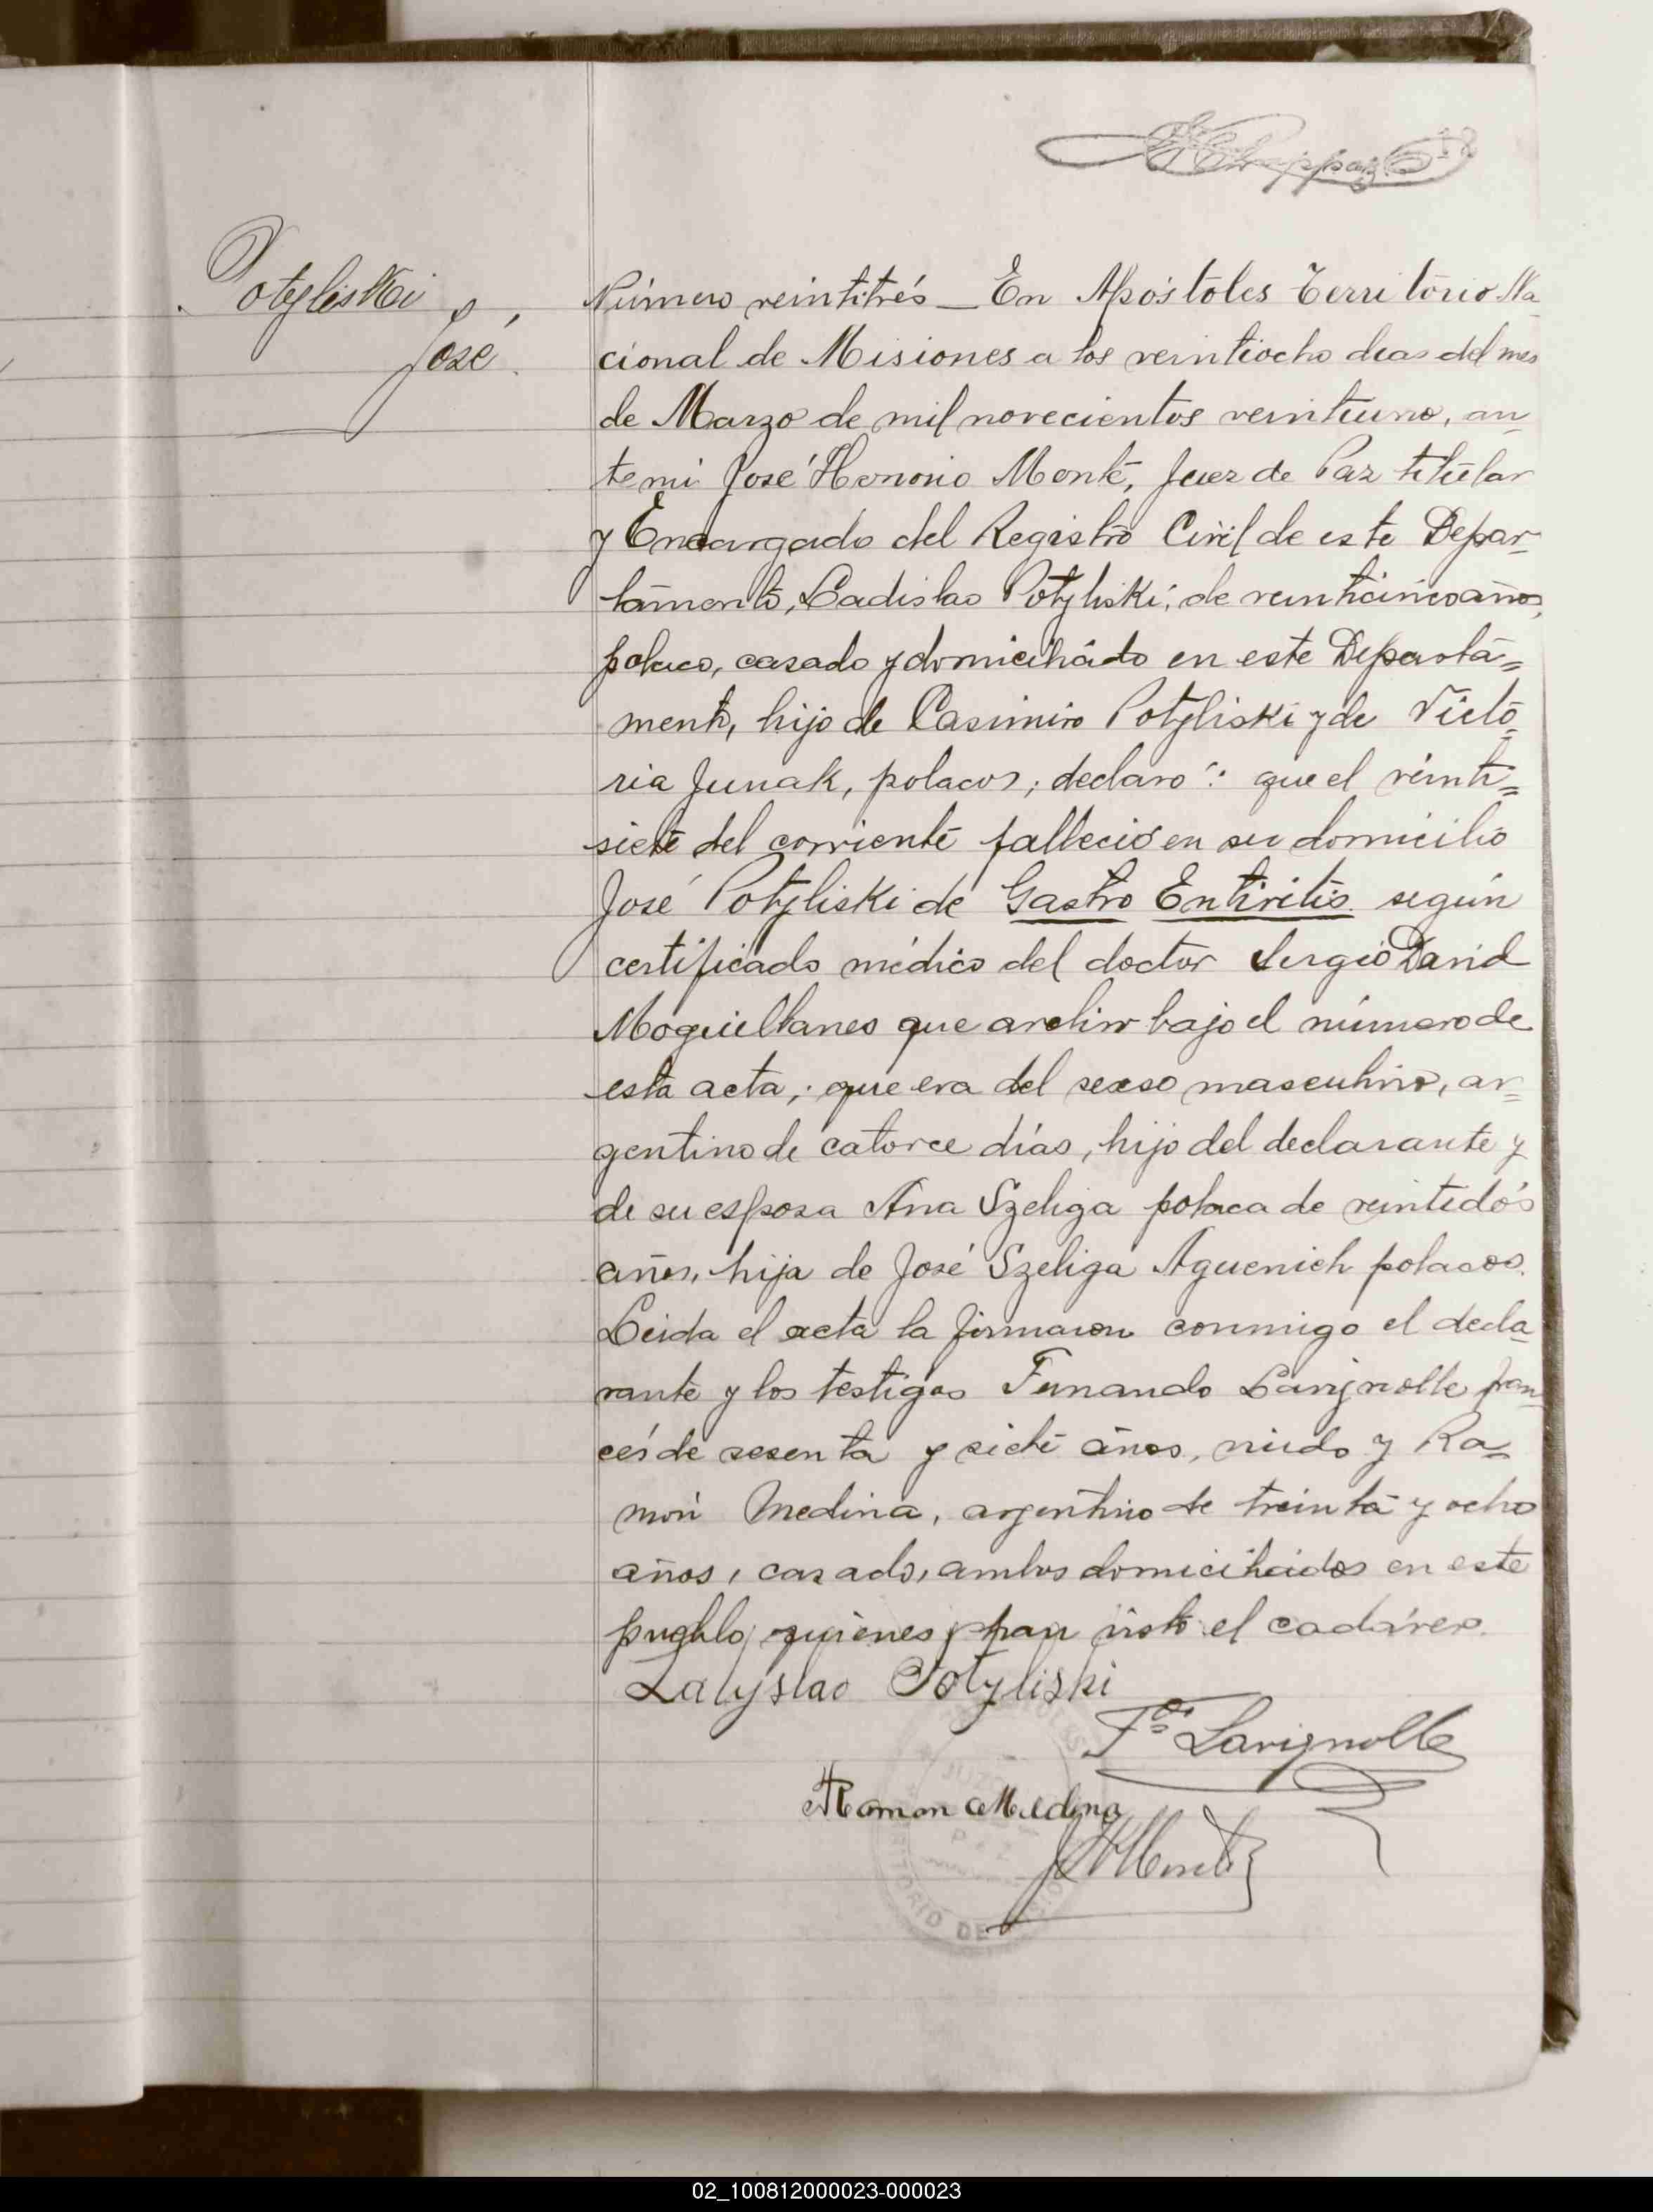 Potyliski
José.
Número veintitrés _ En Apóstoles Territorio Na-
cional de Misiones a los veintiocho dias del mes
de Marzo de mil novecientos veintiuno, an-
te mi José Honorio Monte, Juez de Paz titular
y Encargado del Registro Civil de este Depar-
tamento, Ladislao Potyliski, de veinticinco años,
polaco, casado y domiciliado en este Departa=
mento, hijo de Casimiro Potyliski y de Victo-
ria Junak, polacos; declaro: que el veinti=
siete del corriente falleció en su domicilio
José Potyliski de Gastro Entiritis según
certificado médico del doctor Sergio David
Moguillanes que archivo bajo el número de
esta acta; que era del sexso masculino, ar=
gentino de catorce días, hijo del declarante y
de su esposa Ana Szeliga polaca de veintidós
años, hija de José Szeliga Aguenich polacos.
Leida el acta la firmaron conmigo el decla-
rante y los testigos Fernando Lavignolle fran-
cés de sesenta y siete años, viudo y Ra=
món Medina, argentino de treinta y ocho
años, casado, ambos domiciliados en este
pueblo, quienes han visto el cadáver.
Ladyslao Potyliski
Fdo Lavignolle
Ramon Medina
JHMonte
JUZ
PAZ
TERRITORIO DE
02_100812000023-000023